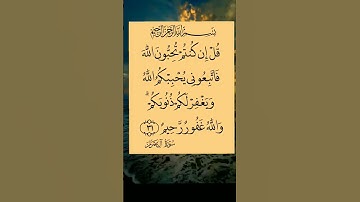 بسم الله الرحمن الرحيم
قُلْ إِن كُنتُمْ تُحِبُّونَ اللَّهَ
فَاتَّبِعُونِي يُحْبِبْكُمُ اللَّهُ
وَيَغْفِرْ لَكُمْ ذُنُوبَكُمْ ۗ
وَاللَّهُ غَفُورٌ رَّحِيمٌ ﴿٣١﴾
سورة آل عمران